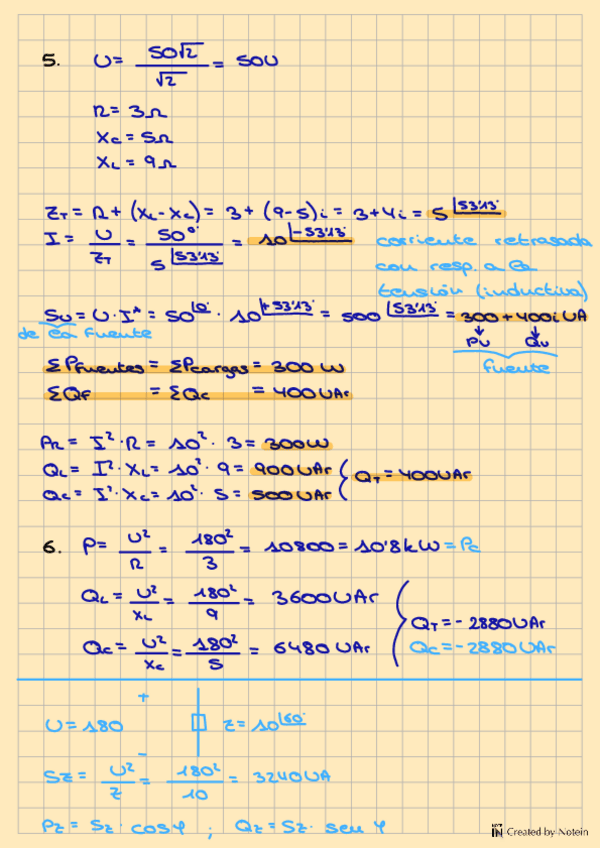 5. U = 50√2 / √2 = 50V
R = 3Ω
Xc = 5Ω
XL = 9Ω
ZT = R + (XL - Xc) = 3 + (9-5)i = 3+4i = 5 |53'13º
I = U / ZT = 50 |0º / 5 |53'13º = 10 |-53'13º corriente retrasada
con resp. a la
tensión (inductiva)
SU = U · I* = 50 |0º · 10 |+53'13º = 500 |53'13º = 300 + 400i VA
de la fuente PU QU
fuente
ΣPfuentes = ΣPcargas = 300 W
ΣQF = ΣQc = 400 VAr
PR = I² · R = 10² · 3 = 300W
QL = I² · XL = 10² · 9 = 900 VAr
QT = 400 VAr
Qc = I² · Xc = 10² · 5 = 500 VAr
6. P = U² / R = 180² / 3 = 10800 = 10'8 kW = Pc
QL = U² / XL = 180² / 9 = 3600 VAr
QT = - 2880 VAr
Qc = U² / Xc = 180² / 5 = 6480 VAr
QC = - 2880 VAr
+
U = 180 Z = 10 |60º
-
SZ = U² / Z = 180² / 10 = 3240 VA
PZ = SZ · cos φ ; QZ = SZ · sen φ
Created by Notein